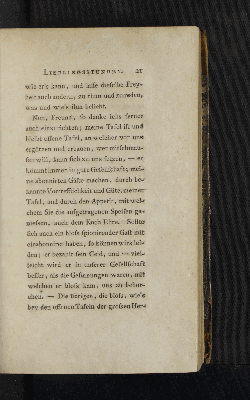 LIEBLINGSSTUNDEN. 21
wie ers kann, und lasse dieselbe Frey-
heit auch andern, zu thun und zu reden,
was und wie's ihm beliebt.
Nun, Freund, so danke ichs ferner
auch einzurichten; meine Tafel ist und
bleibt offene Tafel, an welcher wir uns
ergötzen und erbauen, wer mitschmau-
sen will, kann sich zu uns setzen, — er
kömmt immer in gute Gesellschaft, mei-
ne abonnirten Gäste machen, durch be-
kannte Vortrefflichkeit und Güte, meiner
Tafel, und durch den Appetit, mit wel-
chem Sie die aufgetragenen Speisen ge-
niessen, auch dem Koch Ehre. Sollte
sich auch ein bloss spionirender Gast mit
eingeschlichen haben, so können wirs lei-
den; er bezahlt sein Geld, und — viel-
leicht wird er in unserer Gesellschaft
besser, als die Gesinnungen waren, mit
welchen er bloss kam, uns zu belau-
schen. — Die übrigen, die bloss, wie's
bey den offenen Tafeln der grossen Her-